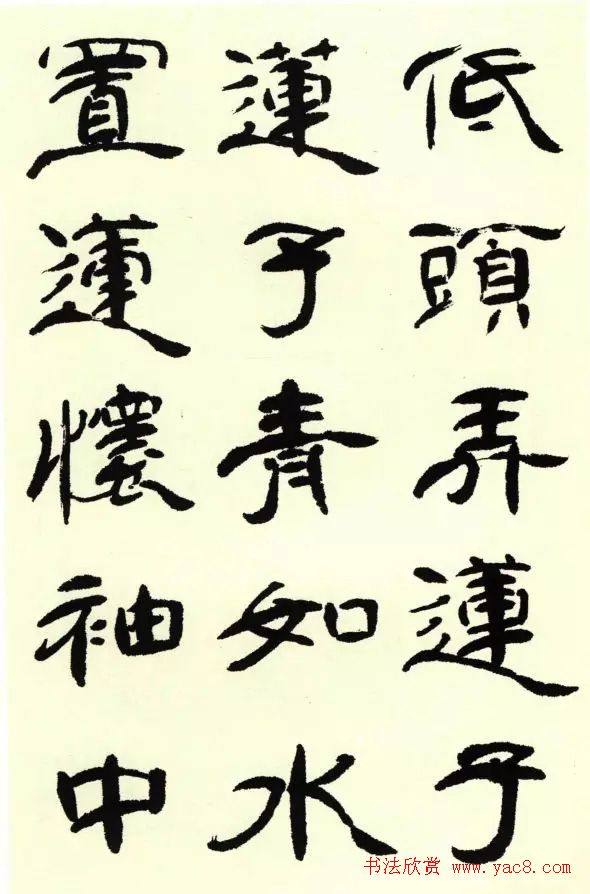 低頭弄蓮子
蓮子青如水
置蓮懷袖中
书法欣赏 www.yac8.com